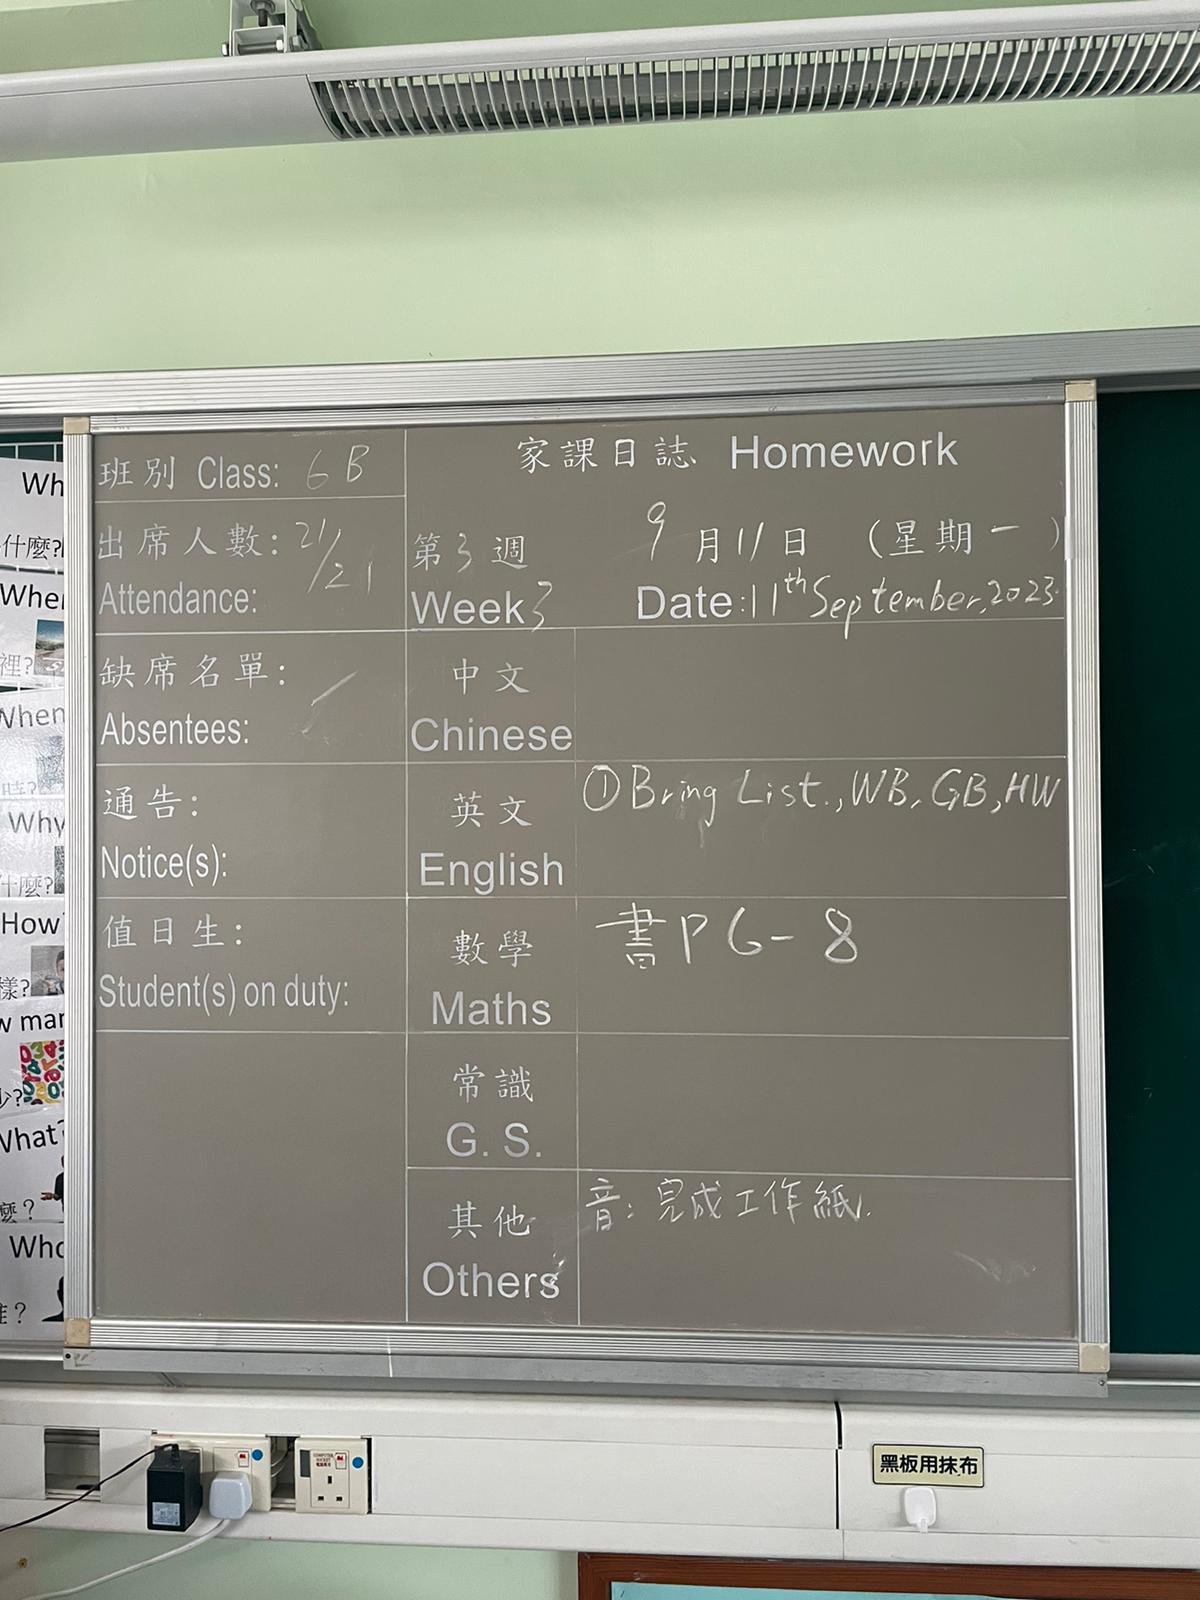 班別 Class: 6B
出席人數: 21/21
Attendance:
缺席名單:
Absentees:
通告:
Notice(s):
值日生:
Student(s) on duty:
家課日誌 Homework
第3週 9月11日 (星期一)
Week 3 Date: 11th September, 2023.
中文
Chinese
英文
English
①Bring List., WB, GB, HW
數學
Maths
書P6-8
常識
G. S.
其他
Others
音: 完成工作紙.
Wh
什麼?
Whe
裡?
When
時?
Why
什麼?
How?
樣?
w mar
少?
What?
麼?
Who
誰?
COMPUTER SOCKET
黑板用抹布